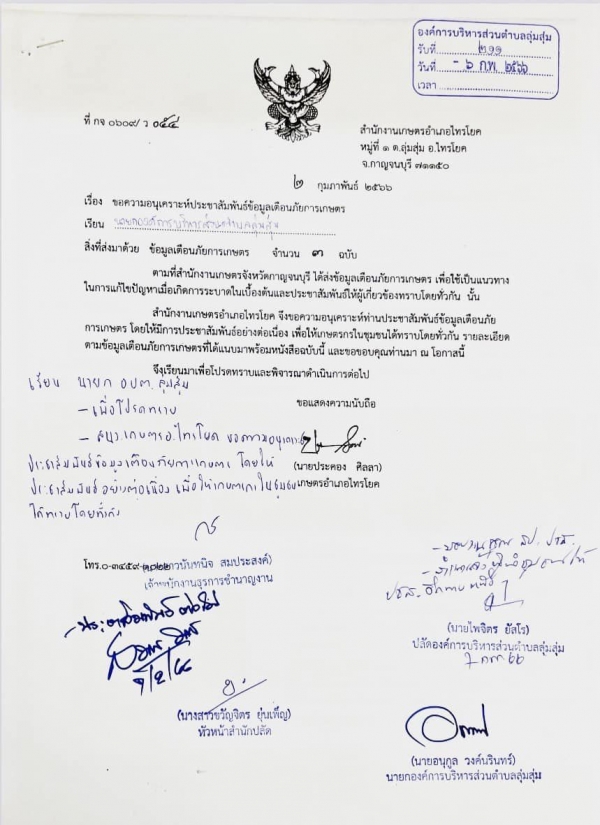 องค์การบริหารส่วนตำบลลุ่มสุ่ม
รับที่ ๒๑๑
วันที่ - ๖ ก.พ. ๒๕๖๖
เวลา
ที่ กจ ๐๖๐๙/ว ๐๕๔
สำนักงานเกษตรอำเภอไทรโยค
หมู่ที่ ๑ ต.ลุ่มสุ่ม อ.ไทรโยค
จ.กาญจนบุรี ๗๑๑๕๐
๒ กุมภาพันธ์ ๒๕๖๖
เรื่อง ขอความอนุเคราะห์ประชาสัมพันธ์ข้อมูลเตือนภัยการเกษตร
เรียน นายกองค์การบริหารส่วนตำบลลุ่มสุ่ม
สิ่งที่ส่งมาด้วย ข้อมูลเตือนภัยการเกษตร จำนวน ๓ ฉบับ
ตามที่สำนักงานเกษตรจังหวัดกาญจนบุรี ได้ส่งข้อมูลเตือนภัยการเกษตร เพื่อใช้เป็นแนวทาง
ในการแก้ไขปัญหาเมื่อเกิดการระบาดในเบื้องต้นและประชาสัมพันธ์ให้ผู้เกี่ยวข้องทราบโดยทั่วกัน นั้น
สำนักงานเกษตรอำเภอไทรโยค จึงขอความอนุเคราะห์ท่านประชาสัมพันธ์ข้อมูลเตือนภัย
การเกษตร โดยให้มีการประชาสัมพันธ์อย่างต่อเนื่อง เพื่อให้เกษตรกรในชุมชนได้ทราบโดยทั่วกัน รายละเอียด
ตามข้อมูลเตือนภัยการเกษตรที่ได้แนบมาพร้อมหนังสือฉบับนี้ และขอขอบคุณท่านมา ณ โอกาสนี้
จึงเรียนมาเพื่อโปรดทราบและพิจารณาดำเนินการต่อไป
ขอแสดงความนับถือ
(นายประคอง ศิลลา)
เกษตรอำเภอไทรโยค
เรียน นายก อบต.ลุ่มสุ่ม
- เพื่อโปรดทราบ
- สนง.เกษตรอ.ไทรโยค ขอความอนุเคราะห์
ประชาสัมพันธ์ข้อมูลเตือนภัยการเกษตร โดยให้
ประชาสัมพันธ์อย่างต่อเนื่อง เพื่อให้เกษตรกรในชุมชน
ได้ทราบโดยทั่วกัน
โทร.๐-๓๔๕๙-
นันทนิจ สมประสงค์)
เจ้าพนักงานธุรการชำนาญงาน
(นางสาวขวัญจิตร ยุ่นเพ็ญ)
หัวหน้าสำนักปลัด
(นายไพจิตร ยัสโร)
ปลัดองค์การบริหารส่วนตำบลลุ่มสุ่ม
7 กพ 66
(นายอนุกูล วงค์นรินทร์)
นายกองค์การบริหารส่วนตำบลลุ่มสุ่ม